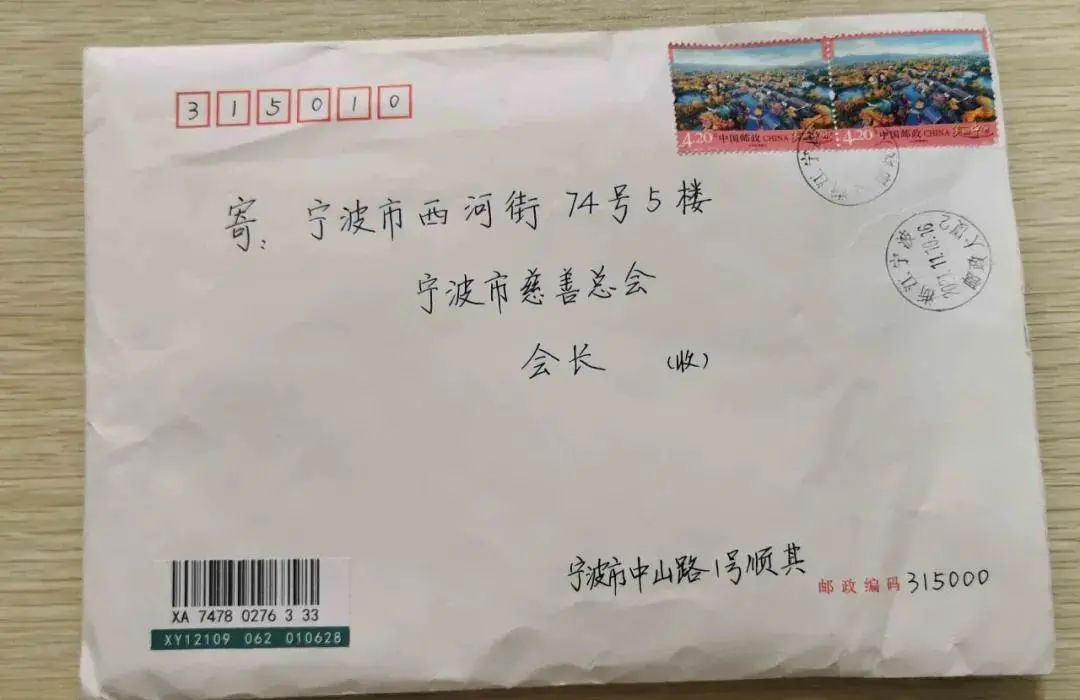 315010
4.20元 中国邮政 CHINA
4.20元 中国邮政 CHINA
寄: 宁波市西河街74号5楼
宁波市慈善总会
会长 (收)
浙江宁波
2021.11.10.16
宁波市中山路1号顺其
邮政编码 315000
XA 7478 0276 3 33
XY12109 062 010628